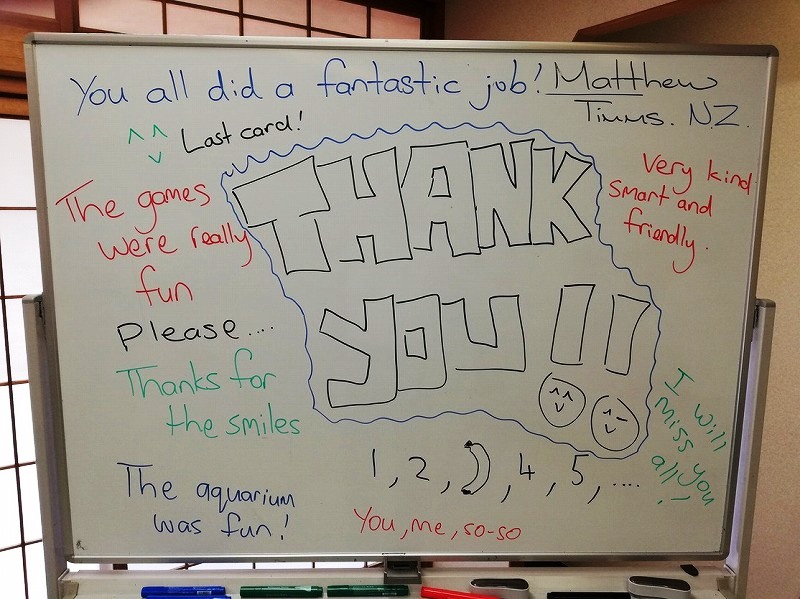 You all did a fantastic job! Matthew
Timms. N.Z.
Last card!
THANK
YOU!!
The games
were really
fun
Very kind
smart and
friendly.
Please....
Thanks for
the smiles
I will
miss you
all!
The aquarium
was fun!
1, 2, , 4, 5, ....
You, me, so-so